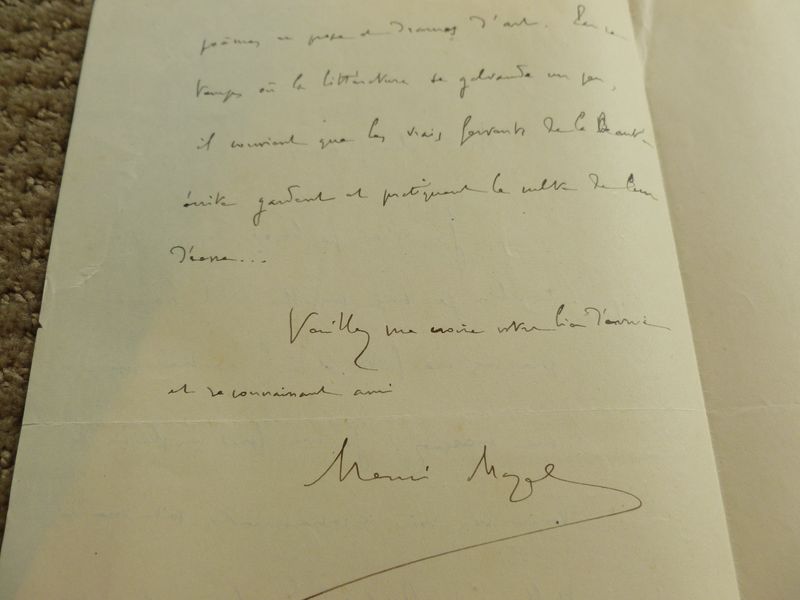 poèmes en prose et drames d'art. En ce
temps où la littérature se galvaude un peu,
il convient que les vrais servants de la Beauté
écrite gardent et pratiquent le culte de leur
déesse...
Veuillez me croire votre bien dévoué
et reconnaissant ami
Henri Mazel